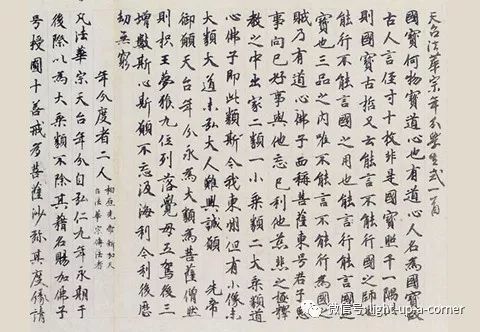 天台法華宗年分學生式一首
國寶何物寶道心也有道心人名為國寶故
古人言徑寸十枚非是國寶照千一隅此
則國寶古哲又云能言不能行國之師也
能行不能言國之用也能行能言國之
寶也三品之內唯不能言不能行為國之
賊乃有道心佛子西稱菩薩東號君子惡
事向己好事與他忘己利他慈悲之極釋
教之中出家二類一小乘類二大乘類道
心佛子即此類斯今我東州但有小像未有
大類大道未弘大人難興誠願 先帝
御願天台年分永為大類為菩薩僧然
則枳王夢猴九位列落覺母五駕後三
增數斯心斯願不忘汲海利今利後歷
劫無窮
年分度者二人
柏原先帝新加天
台法華宗傳法者
凡法華宗天台年分自弘仁九年永期于
後際以為大乘類不除其籍名賜加佛子
號授圓十善戒為菩薩沙彌其度緣請
微信号: light-up-a-corner